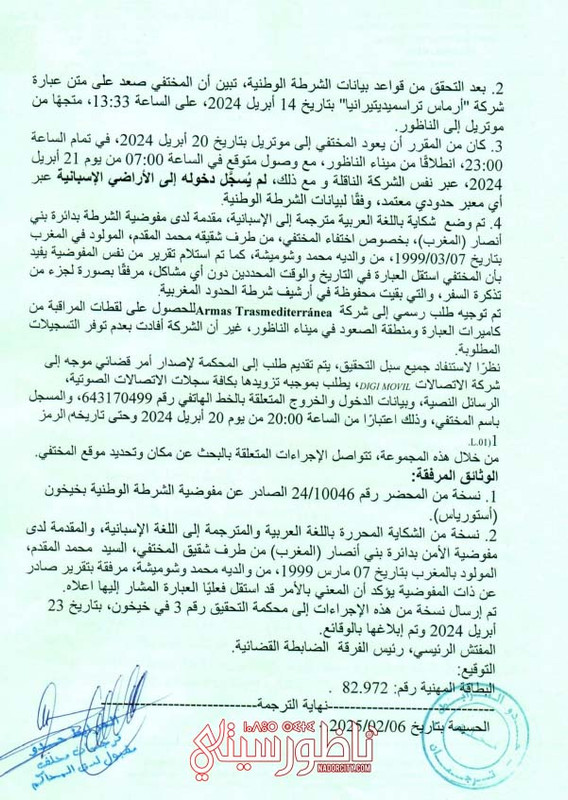 2. بعد التحقق من قواعد بيانات الشرطة الوطنية، تبين أن المختفي صعد على متن عبارة
شركة "أرماس تراسميديتيرانيا" بتاريخ 14 أبريل 2024، على الساعة 13:33، متجهًا من
موتريل إلى الناظور.
3. كان من المقرر أن يعود المختفي إلى موتريل بتاريخ 20 أبريل 2024، في تمام الساعة
23:00، انطلاقًا من ميناء الناظور، مع وصول متوقع في الساعة 07:00 من يوم 21 أبريل
2024، عبر نفس الشركة الناقلة و مع ذلك، لم يُسجَّل دخوله إلى الأراضي الإسبانية عبر
أي معبر حدودي معتمد، وفقًا لبيانات الشرطة الوطنية.
4. تم وضع شكاية باللغة العربية مترجمة إلى الإسبانية، مقدمة لدى مفوضية الشرطة بدائرة بني
أنصار (المغرب)، بخصوص اختفاء المختفي، من طرف شقيقه محمد المقدم، المولود في المغرب
بتاريخ 1999/03/07، من والديه محمد وشوميشة، كما تم استلام تقرير من نفس المفوضية يفيد
بأن المختفي استقل العبارة في التاريخ والوقت المحددين دون أي مشاكل، مرفقًا بصورة لجزء من
تذكرة السفر، والتي بقيت محفوظة في أرشيف شرطة الحدود المغربية.
تم توجيه طلب رسمي إلى شركة Armas Trasmediterránea للحصول على لقطات المراقبة من
كاميرات العبارة ومنطقة الصعود في ميناء الناظور، غير أن الشركة أفادت بعدم توفر التسجيلات
المطلوبة.
نظرًا لاستنفاد جميع سبل التحقيق، يتم تقديم طلب إلى المحكمة لإصدار أمر قضائي موجه إلى
شركة الاتصالات DIGI MOVIL، يطلب بموجبه تزويدها بكافة سجلات الاتصالات الصوتية،
الرسائل النصية، وبيانات الدخول والخروج المتعلقة بالخط الهاتفي رقم 643170499، والمسجل
باسم المختفي، وذلك اعتبارًا من الساعة 20:00 من يوم 20 أبريل 2024 وحتى تاريخه (الرمز
1(L.01.
من خلال هذه المجموعة، تتواصل الإجراءات المتعلقة بالبحث عن مكان وتحديد موقع المختفي.
الوثائق المرفقة:
1. نسخة من المحضر رقم 24/10046 الصادر عن مفوضية الشرطة الوطنية بخيخون
(أستورياس).
2. نسخة من الشكاية المحررة باللغة العربية والمترجمة إلى اللغة الإسبانية، والمقدمة لدى
مفوضية الأمن بدائرة بني أنصار (المغرب) من طرف شقيق المختفي، السيد محمد المقدم،
المولود بالمغرب بتاريخ 07 مارس 1999، من والديه محمد وشوميشة، مرفقة بتقرير صادر
عن ذات المفوضية يؤكد أن المعني بالأمر قد استقل فعليًا العبارة المشار إليها اعلاه.
تم إرسال نسخة من هذه الإجراءات إلى محكمة التحقيق رقم 3 في خيخون، بتاريخ 23
أبريل 2024 وتم إبلاغها بالوقائع.
المفتش الرئيسي، رئيس الفرقة الضابطة القضائية.
التوقيع:
البطاقة المهنية رقم: 82.972 .
------------------نهاية الترجمة------------------
الحسيمة بتاريخ 2025/02/06
ترجمان محلف
مقبول لدى المحاكم
ترجمان
ناظورسيتي
NADORCITY.COM